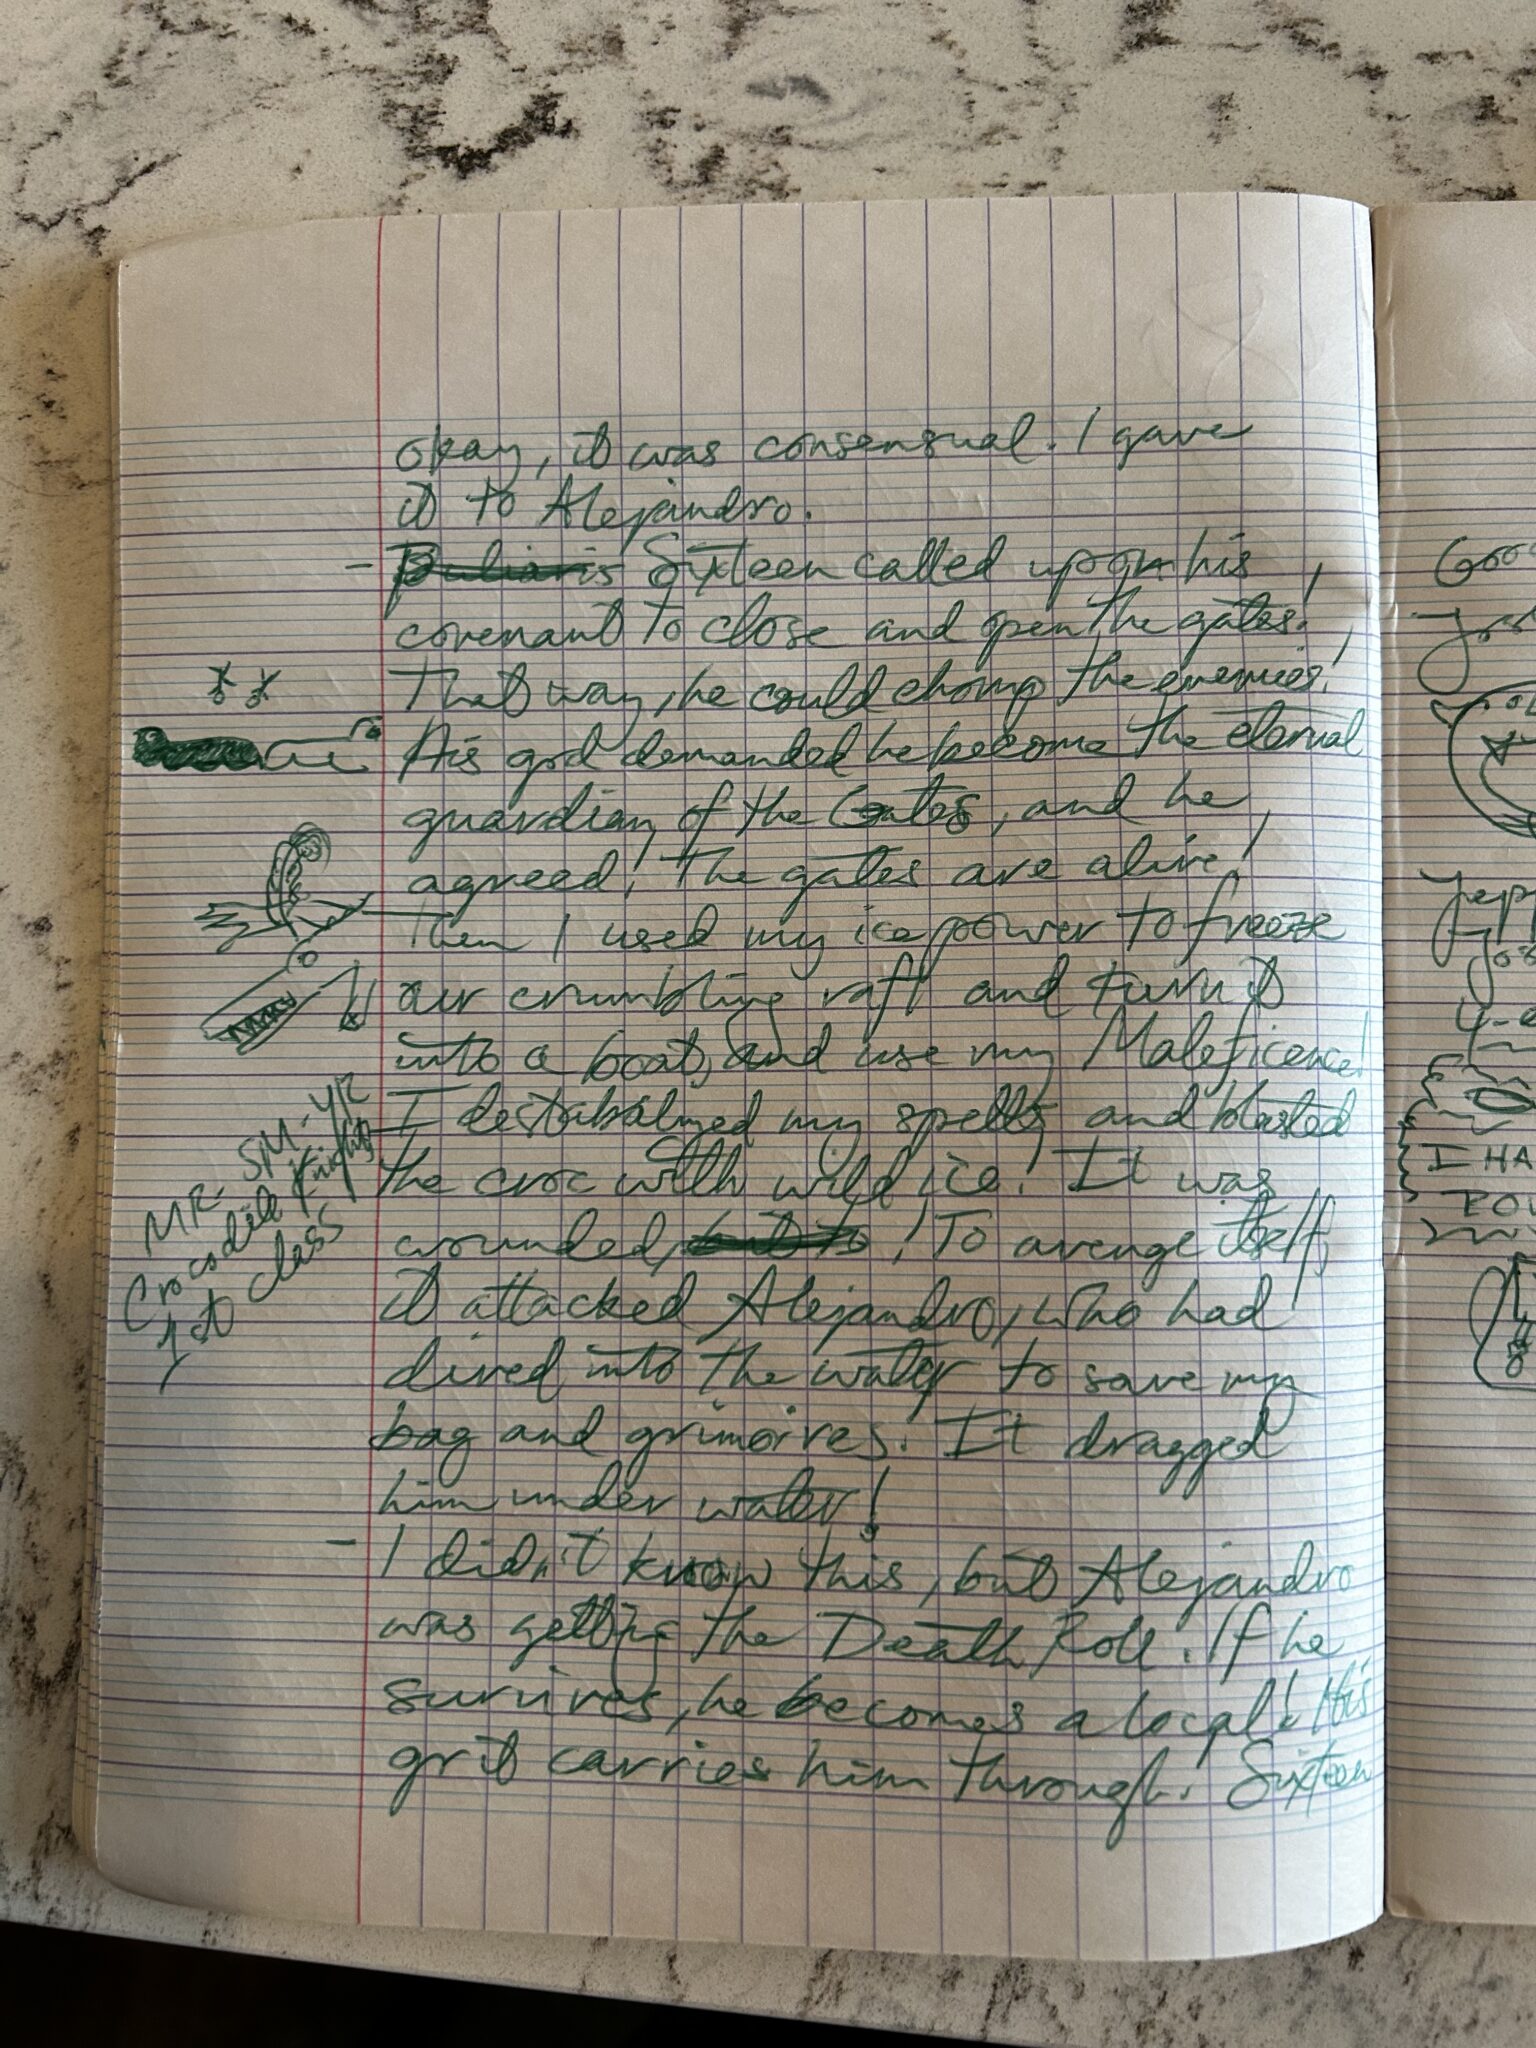 okay, it was consensual. I gave
it to Alejandro.
- Sixteen called upon his
covenant to close and open the gates!
That way, he could chomp the enemies!
His god demanded he become the eternal
guardian of the Gates, and he
agreed! The gates are alive!
Then I used my ice power to freeze
our crumbling raft and turn it
into a boat, and use my Maleficence!
I destabalyzed my spells and blasted
the croc with wild ice! It was
wounded, but to! To avenge itself,
it attacked Alejandro, who had
dived into the water to save my
bag and grimoires. It dragged
him under water!
- I didn't know this, but Alejandro
was getting the Death Roll. If he
survives, he becomes a local! His
grit carries him through. Sixteen
MR. SM-YR
Crocodile Knight
1st class
I HA